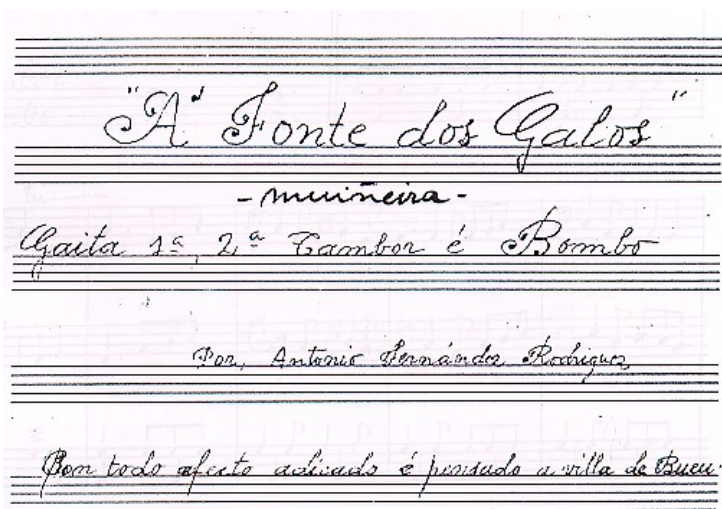 "A" Fonte dos Galos"
- muiñeira -
Gaita 1ª, 2ª Tambor é Bombo
Por, Antonio Fernández Rodriguez
Con todo afecto adicado é pensado a villa de Bueu.